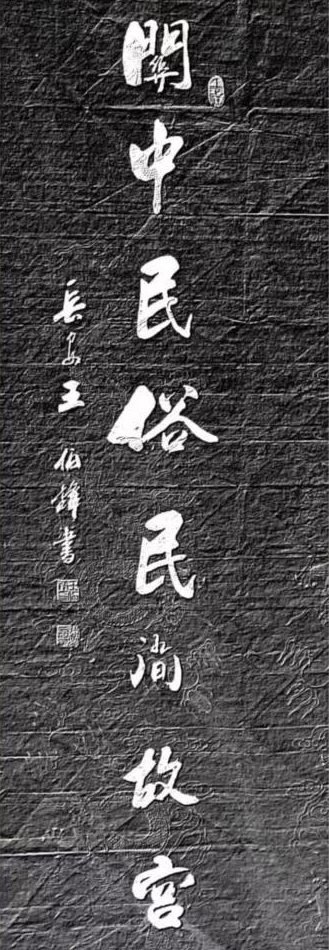 關中民俗民间故宫
長安王伯鋒書